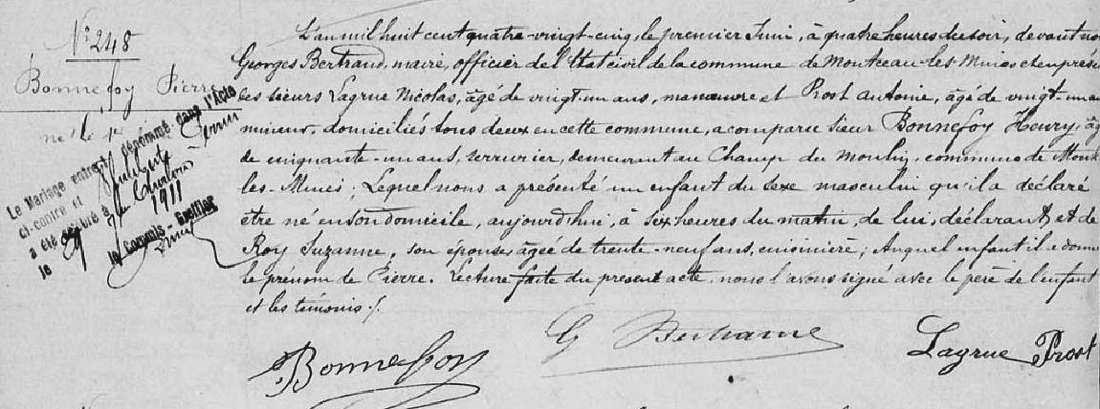 N° 248
Bonnefoy Pierre
né le 1er
Le Mariage entre le dénommé dans l'Acte
ci-contre et
a été célébré à
le 9 1911
le Commis-Greffier
L'an mil huit cent quatre-vingt-cinq, le premier Juin, à quatre heures du soir, devant no
Georges Bertrand, maire, officier de l'État civil de la commune de Montceau-les-Mines et en prése
des sieurs Lagrue Nicolas, âgé de vingt-un ans, manœuvre et Prost Antoine, âgé de vingt-un an
mineur, domiciliés tous deux en cette commune, a comparu sieur Bonnefoy Henry, âg
de cinquante-un ans, serrurier, demeurant au Champ du Moulin, commune de Mont
les-Mines; Lequel nous a présenté un enfant du sexe masculin qu'il a déclaré
être né en son domicile, aujourd'hui, à six heures du matin, de lui, déclarant, et de
Roy Suzanne, son épouse, âgée de trente-neuf ans, cuisinière; Auquel enfant il a donné
le prénom de Pierre. Lecture faite du présent acte, nous l'avons signé avec le père de l'enfant
et les témoins ./.
Bonnefoy G Bertrand Lagrue Prost